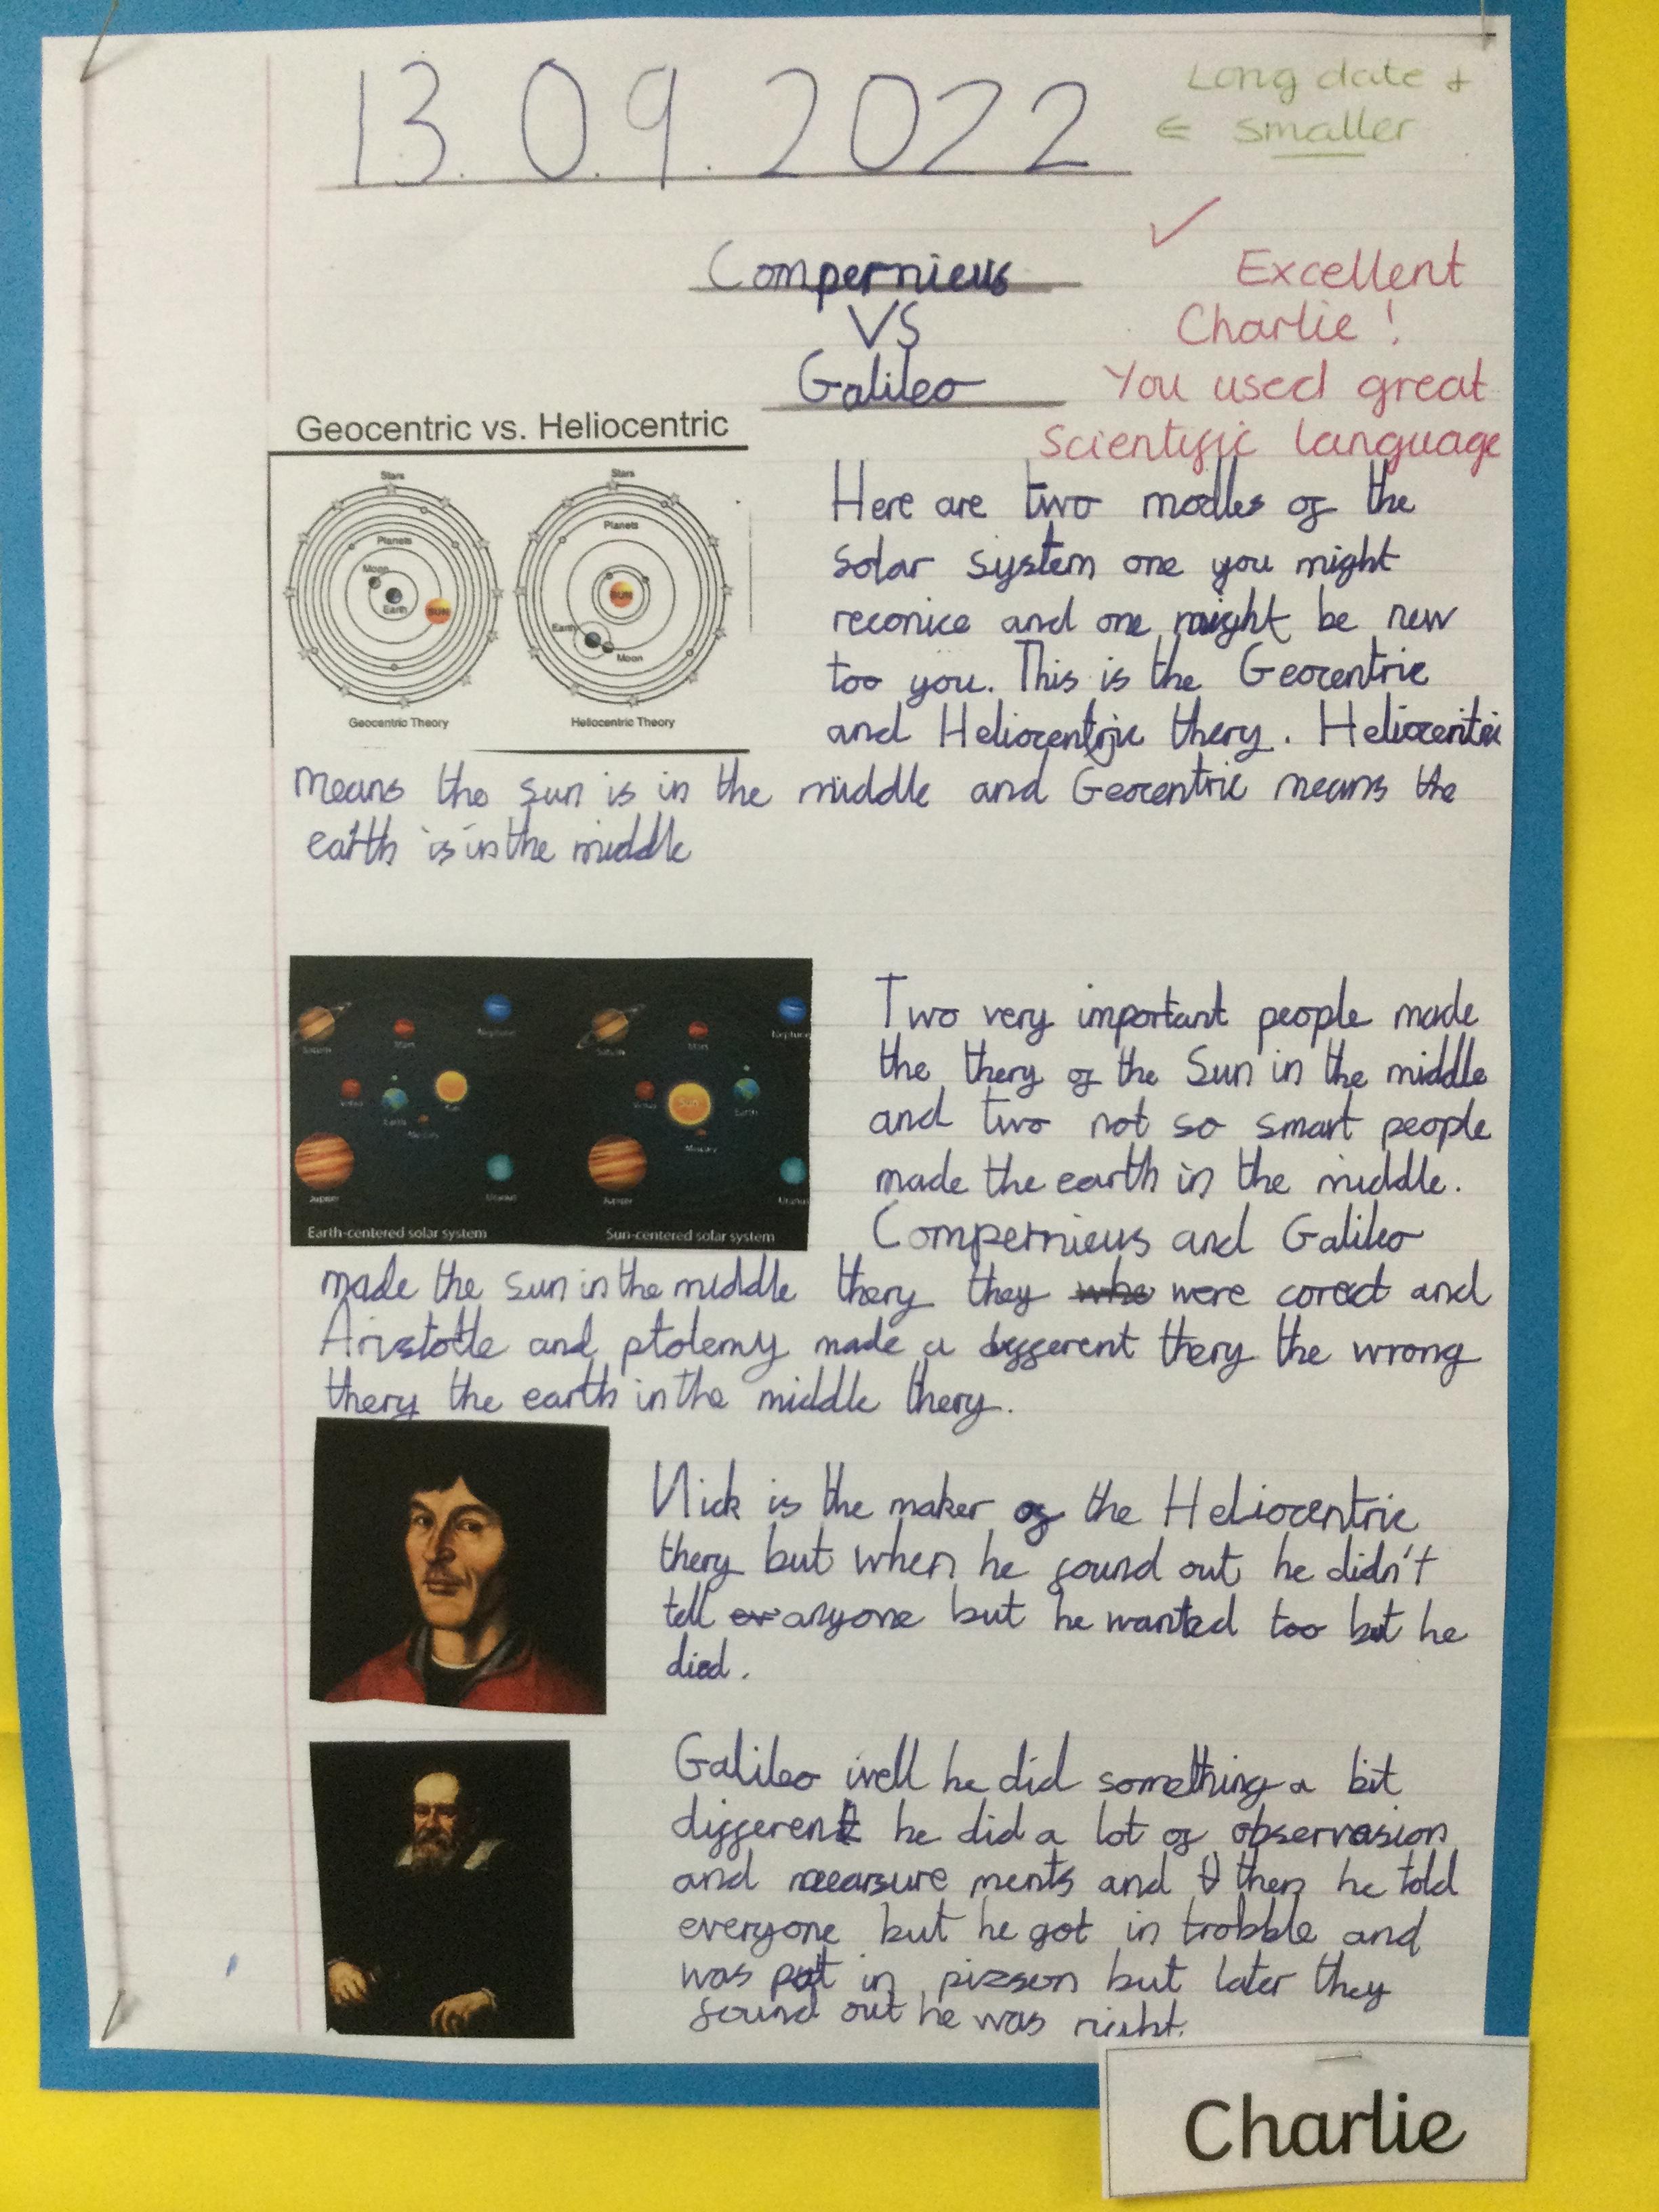 13.09.2022
Long date &
← smaller
Compernicus
VS
Galileo
Excellent
Charlie!
You used great
Scientific language
Geocentric vs. Heliocentric
Stars
Planets
Moon
Earth
SUN
Geocentric Theory
Stars
Planets
SUN
Earth
Moon
Heliocentric Theory
Here are two modles of the
solar system one you might
reconice and one might be new
too you. This is the Geocentric
and Heliocentric thery. Heliocentric
means the sun is in the middle and Geocentric means the
earth is in the middle
Saturn
Mars
Neptune
Venus
Earth
Sun
Mercury
Jupiter
Uranus
Earth-centered solar system
Saturn
Mars
Neptune
Venus
Sun
Earth
Mercury
Jupiter
Uranus
Sun-centered solar system
Two very important people made
the thery of the Sun in the middle
and two not so smart people
made the earth in the middle.
Compernicus and Galileo
made the sun in the middle thery they who were corect and
Aristotle and ptolemy made a different thery the wrong
thery the earth in the middle thery.
Nick is the maker of the Heliocentric
thery but when he found out he didn't
tell ev anyone but he wanted too but he
died.
Galileo well he did something a bit
different he did a lot of observasion
and measure ments and t then he told
everyone but he got in trobble and
was put in pizson but later they
found out he was right.
Charlie